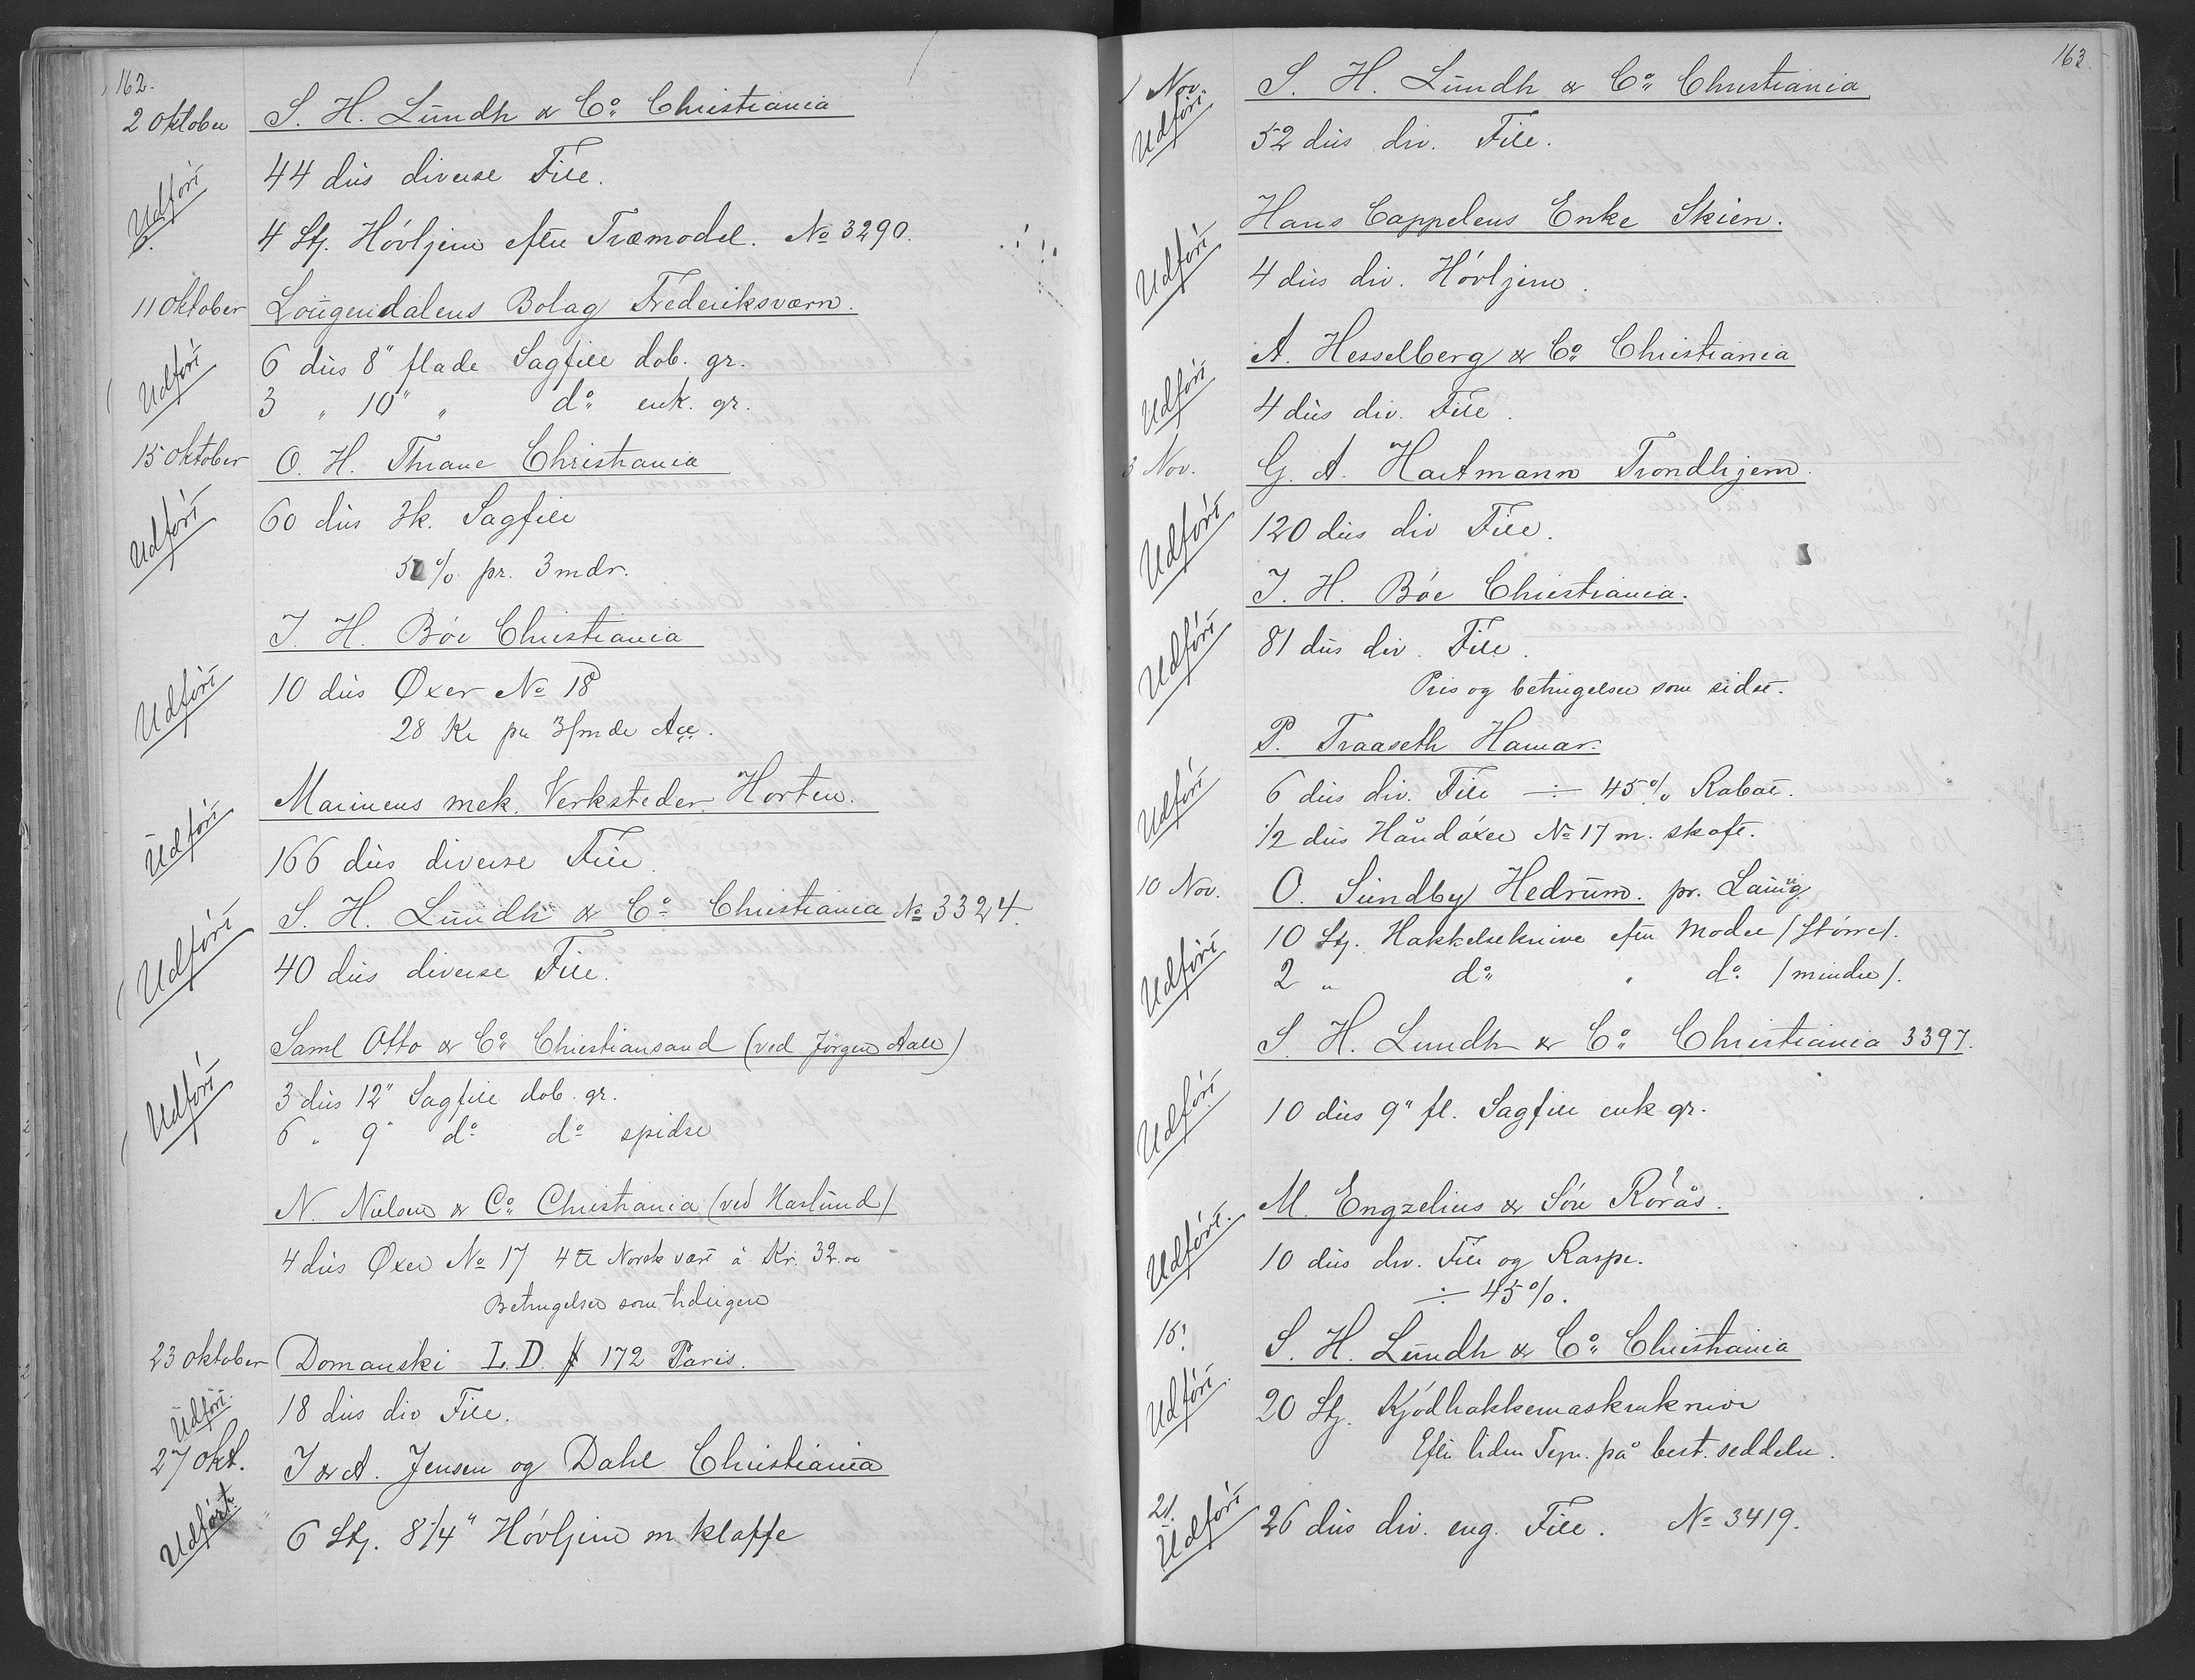 162.
2 Oktober S. H. Lundh & Co. Christiania
Udført 44 dus diverse File.
6. 4 Stj. Høvljern efter Træmodel. No 3290.
11 Oktober Lougendalens Bolag Frederiksværn.
Udført 6 dus 8" flade Sagfile dob. gr.
3 " 10" " do enk. gr.
15 Oktober O. H. Thrane Christiania
Udført 60 dus 3k. Sagfile
5 % pr. 3 mdr.
J. H. Bøe Christiania
Udført 10 dus Øxer No 18
28 Kr pr 3/mdr Acc.
Marinens mek. Verksteder Horten.
Udført 166 dus diverse File
S. H. Lundh & Co. Christiania No 3324.
Udført 40 dus diverse File.
Saml Otto & Co. Christiansand (ved Jørgen Aall)
Udført 3 dus 12" Sagfile dob. gr.
6 " 9" do do spidse
N. Nielsen & Co. Christiania (ved Haslund)
4 dus Øxer No 17 4 tt Norsk vært à Kr. 32.00
Betingelser som tidligere
23 Oktober Domanski I. D. # 172 Paris.
Udført 18 dus div File.
27 Okt. J & A. Jensen og Dahl Christiania
Udført 6 Stj. 8 1/4" Høvljern m klaffe
163.
1 Nov. S. H. Lundh & Co. Christiania
Udført 52 dus div. File.
Hans Cappelens Enke Skien.
Udført 4 dus div. Høvljern.
A. Hesselberg & Co. Christiania
Udført 4 dus div. File.
3 Nov. G. A. Hartmann Trondhjem.
Udført 120 dus div File.
J. H. Bøe Christiania.
Udført 81 dus div. File.
Pris og betingelser som sidst.
P. Traaseth Hamar.
Udført 6 dus div. File ÷ 45% Rabat.
1/2 dus Håndøxer No 17 m. skaft.
10 Nov. O. Sundby Hedrum. pr. Laurvig
Udført 10 Stj. Hakkelseknive efter Model /Større/.
2 " do " do /mindre/.
S. H. Lundh & Co. Christiania 3397.
Udført 10 dus 9" fl. Sagfile enk gr.
M. Engzelius & Søn Rørås.
Udført. 10 dus div. File og Raspe.
÷ 45%.
15. S. H. Lundh & Co. Christiania
Udført. 20 Stj. Kjødhakkemaskinknive
Efter liden Tegn. på best. seddelen.
21. Udført 26 dus div. eng. File. No 3419.